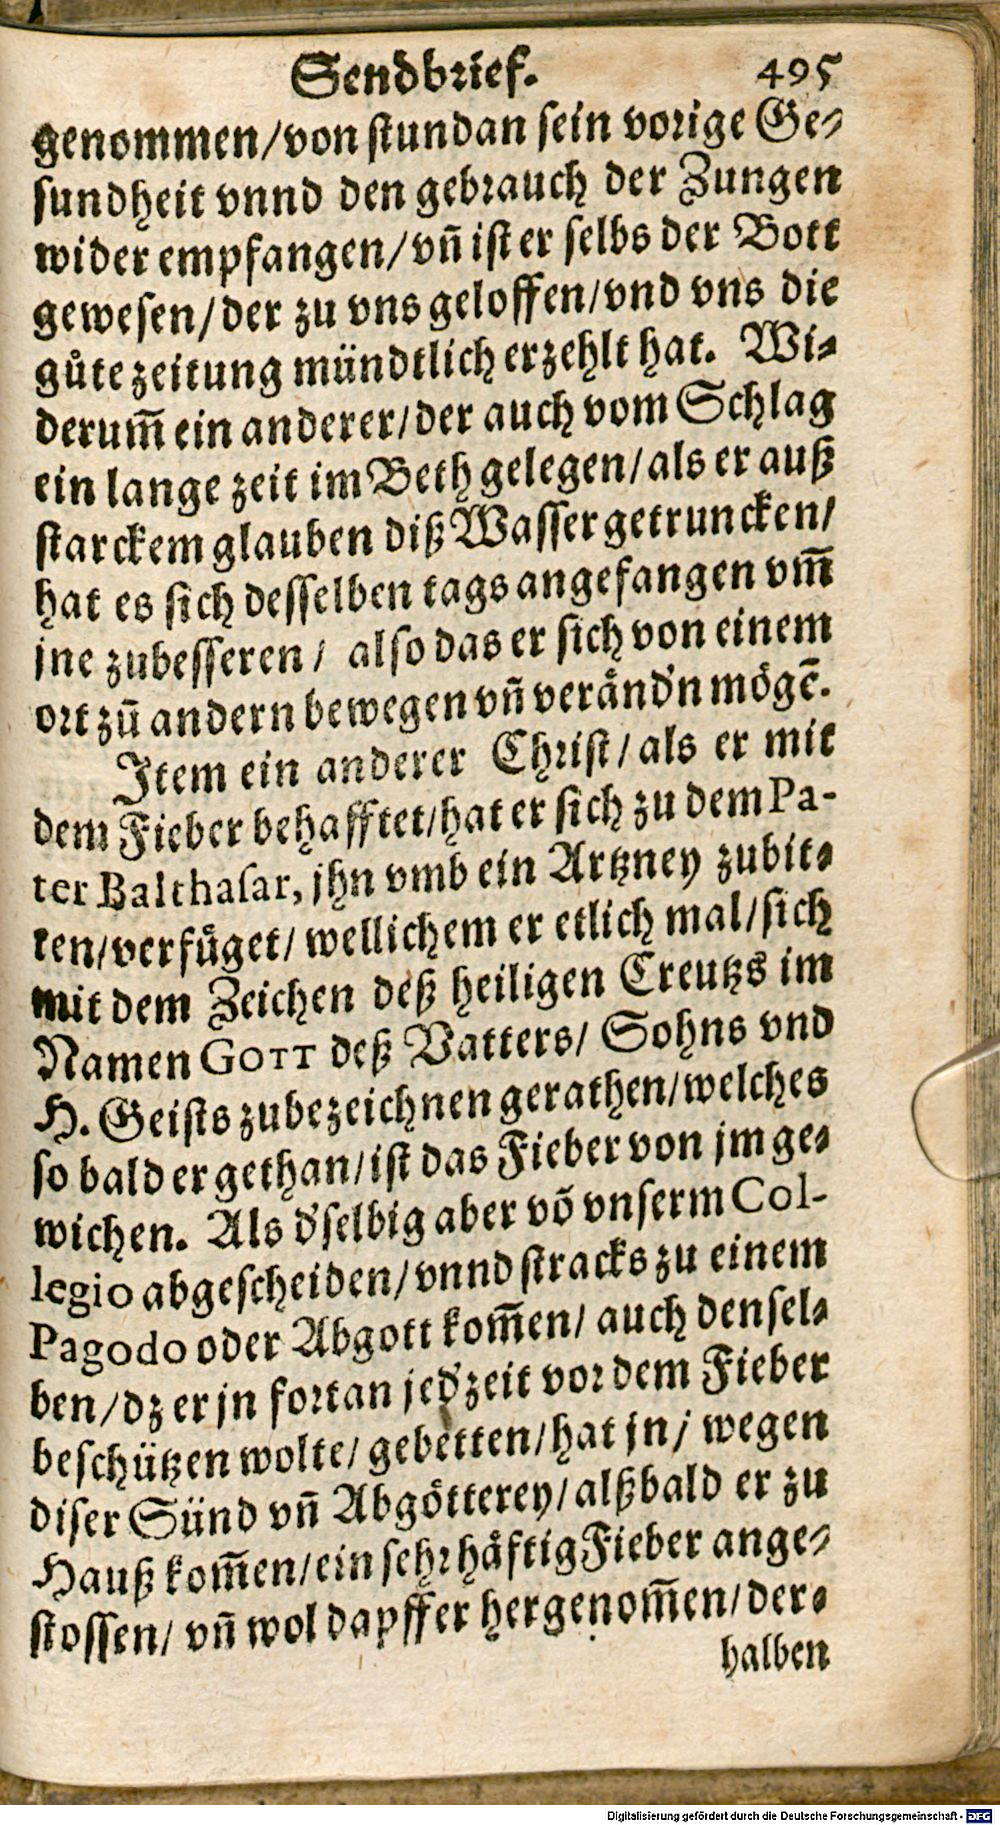 Sendbrief. 495
genommen/von stundan sein vorige Ge-
sundheit vnnd den gebrauch der Zungen
wider empfangen/vñ ist er selbs der Bott
gewesen/der zu vns geloffen/vnd vns die
gůte zeitung mündtlich erzehlt hat. Wi-
derum̃ ein anderer/der auch vom Schlag
ein lange zeit im Beth gelegen/als er auß
starckem glauben diß Wasser getruncken/
hat es sich desselben tags angefangen vm̃
jne zubesseren/ also das er sich von einem
ort zũ andern bewegen vñ veränd'n mögẽ.
Item ein anderer Christ/als er mit
dem Fieber behafftet/hat er sich zu dem Pa-
ter Balthasar, jhn vmb ein Artzney zubit-
ten/verfüget/ wellichem er etlich mal/sich
mit dem Zeichen deß heiligen Creutzs im
Namen GOTT deß Vatters/ Sohns vnd
H. Geists zubezeichnen gerathen/welches
so bald er gethan/ist das Fieber von jm ge-
wichen. Als d'selbig aber võ vnserm Col-
legio abgescheiden/vnnd stracks zu einem
Pagodo oder Abgott kom̃en/ auch densel-
ben/dz er jn fortan jed'zeit vor dem Fieber
beschützen wolte/ gebetten/hat jn/ wegen
diser Sünd vñ Abgötterey/alßbald er zu
Hauß kom̃en/ein sehr häftig Fieber ange-
stossen/ vñ wol dapffer hergenom̃en/der-
halben
Digitalisierung gefördert durch die Deutsche Forschungsgemeinschaft - DFG